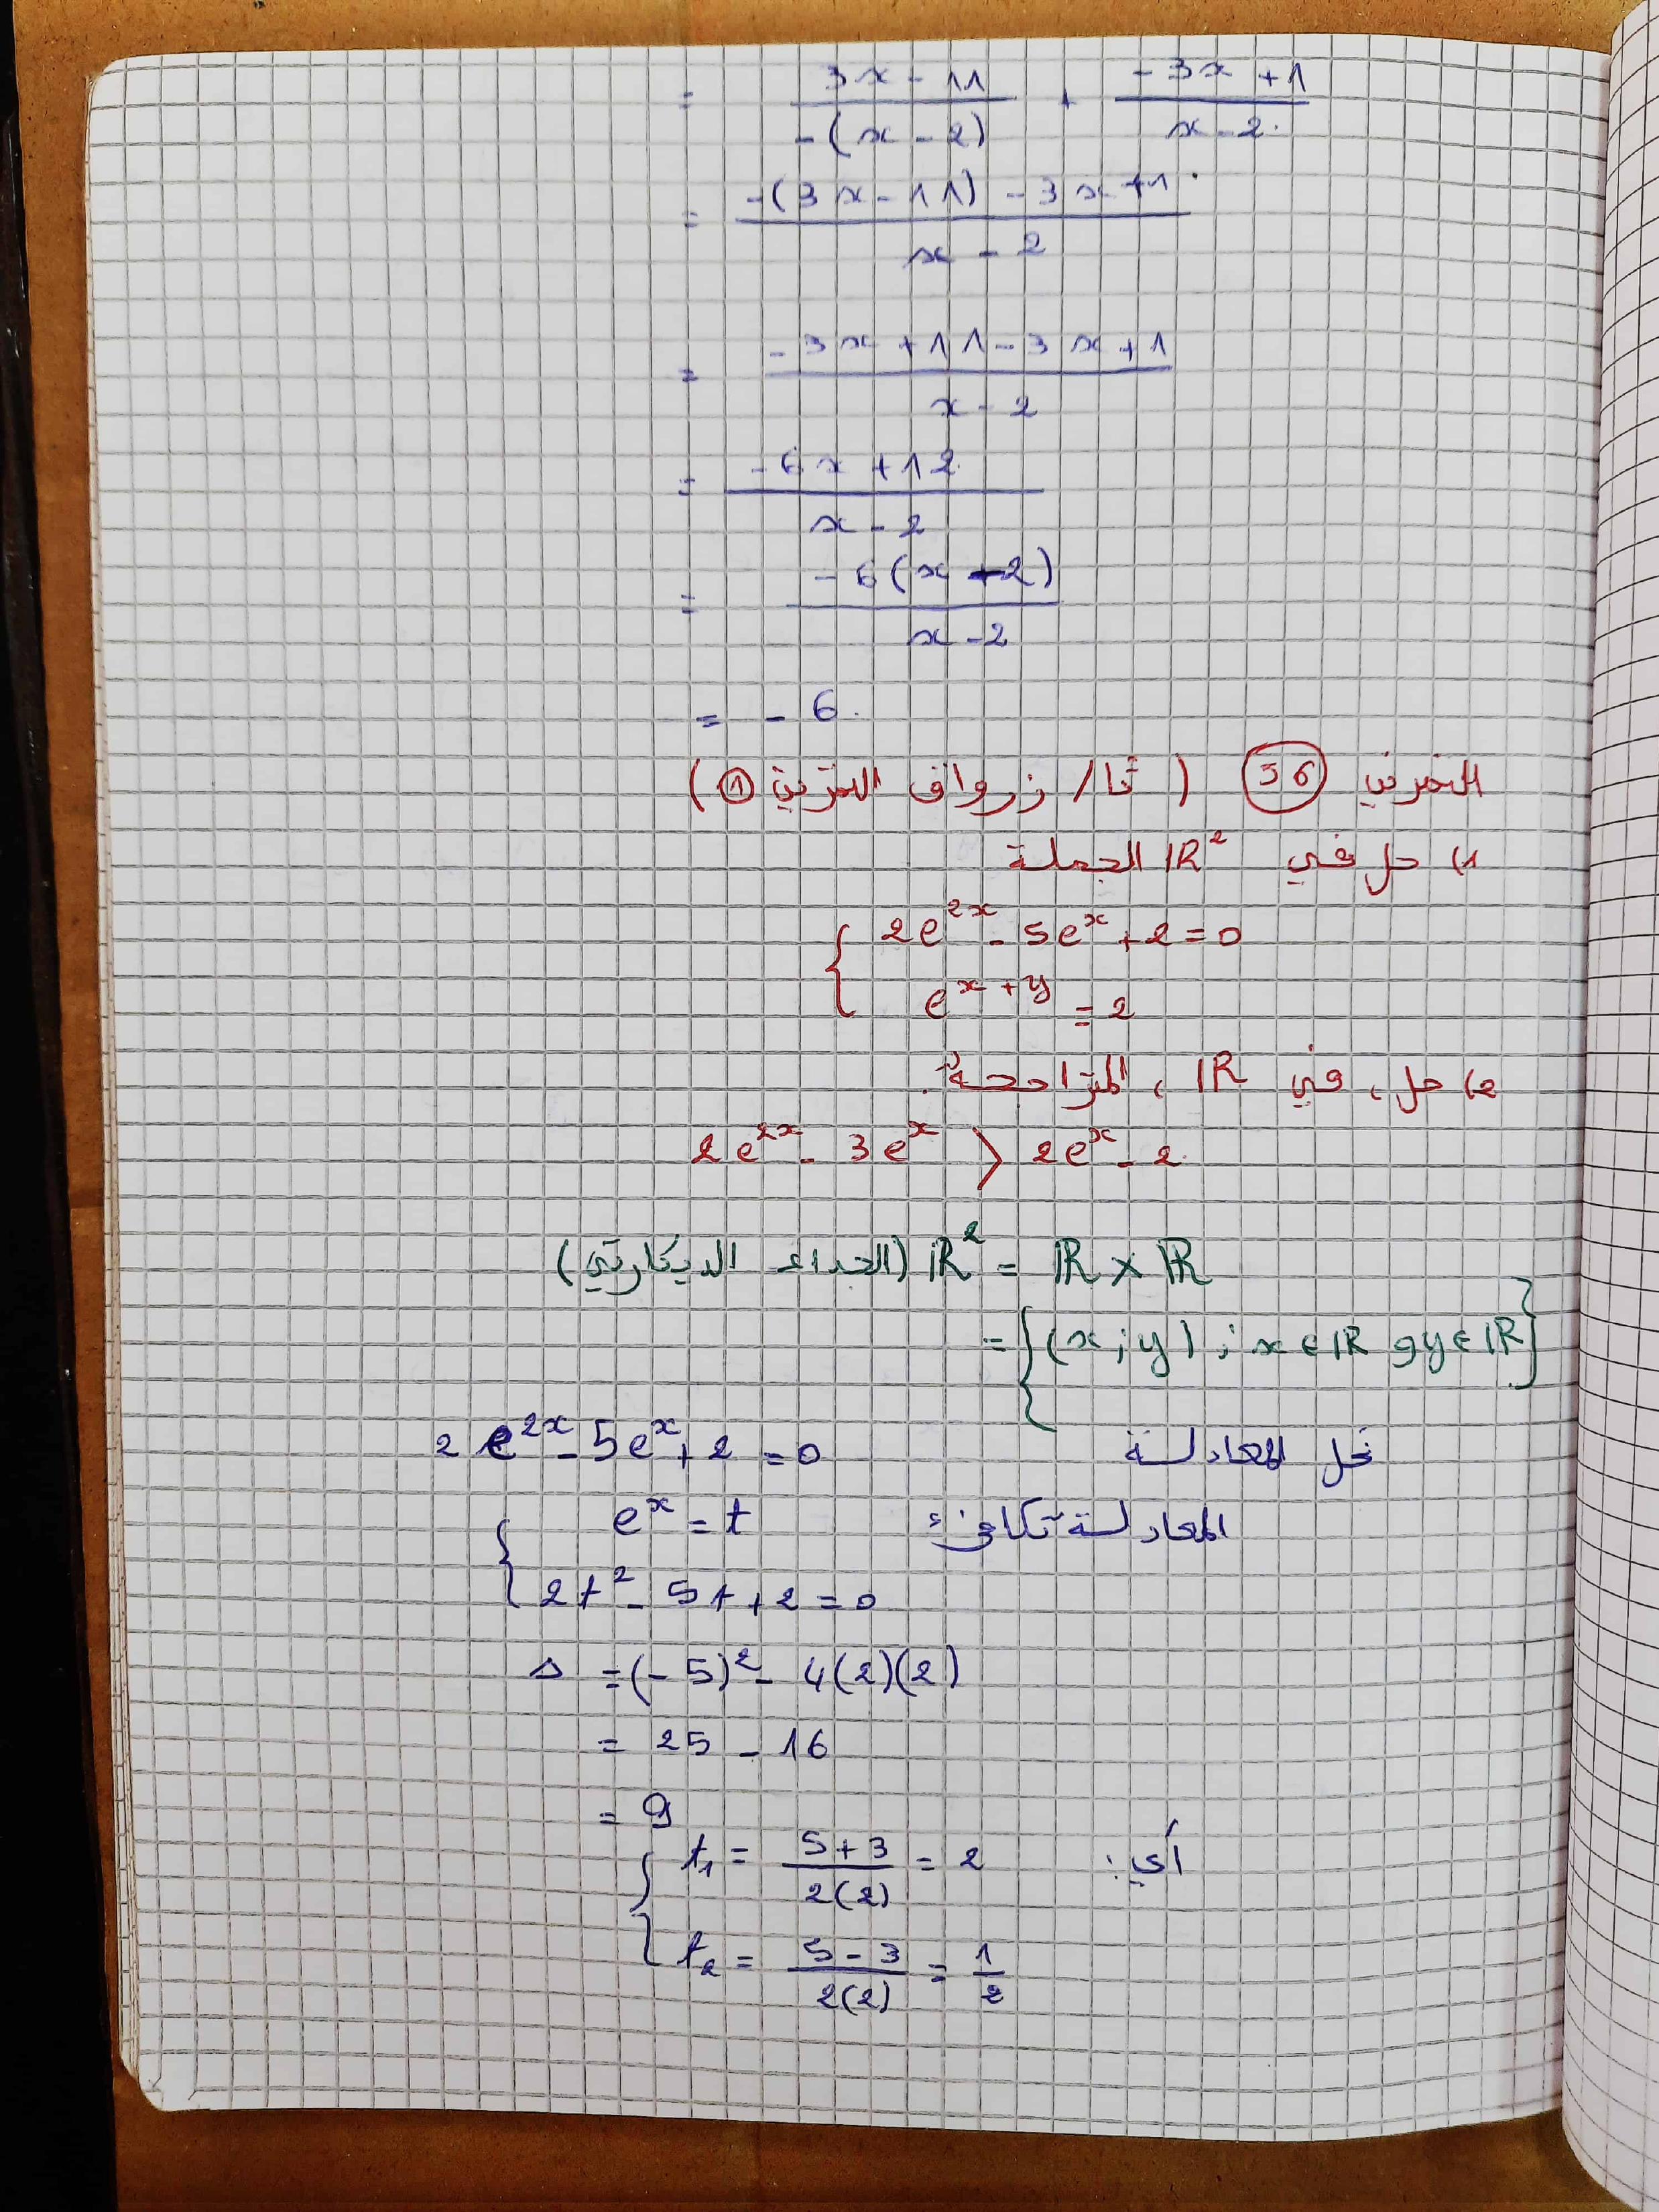 = (3x - 11)/(-(x - 2)) + (-3x + 1)/(x - 2)
= (-(3x - 11) - 3x + 1)/(x - 2)
= (-3x + 11 - 3x + 1)/(x - 2)
= (-6x + 12)/(x - 2)
= (-6(x - 2))/(x - 2)
= -6
التمرين 56 ( ثا/ زرواق التمرين 1 )
1) حل في IR² الجملة
{ 2e^{2x} - 5e^x + 2 = 0
e^{x+y} = 2
2) حل ، في IR ، المتراجحة:
2e^{2x} - 3e^x > 2e^x - 2
IR² = IR × IR (الجداء الديكارتي)
= {(x ; y) ; x ∈ IR و y ∈ IR}
نحل المعادلة 2e^{2x} - 5e^x + 2 = 0
المعادلة تكافئ { e^x = t
2t² - 5t + 2 = 0
Δ = (-5)² - 4(2)(2)
= 25 - 16
= 9
أي: { t₁ = (5 + 3)/(2(2)) = 2
t₂ = (5 - 3)/(2(2)) = 1/2